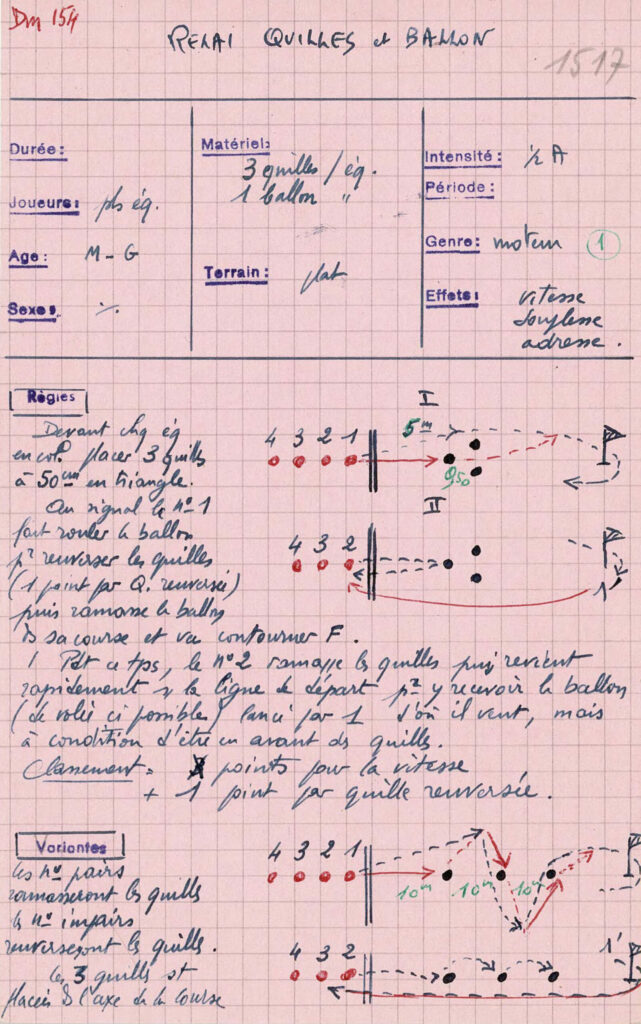 Dm 154
RELAI QUILLES et BALLON
1517
Durée:
Joueurs: pls éq.
Age: M - G
Sexe: ·/.
Matériel:
3 quilles / éq.
1 ballon "
Terrain: plat
Intensité: 1/2 A
Période:
Genre: moteur 1
Effets: vitesse
souplesse
adresse.
Règles
Devant chq éq
en col. placer 3 quills
à 50 cm en triangle.
Au signal le nº 1
fait rouler le ballon
pr renverser les quilles
(1 point par Q. renversée)
puis ramasse le ballon
ds sa course et va contourner F.
! Pdt ce tps, le nº 2 ramasse les quilles puis revient
rapidement s la ligne de départ pr y recevoir le ballon
(de volée si possible) lancé par 1 d'où il veut, mais
à condition d'être en avant ds quills.
Classement = points pour la vitesse
+ 1 point par quille renversée.
I
5 m
4 3 2 1
0,50
II
4 3 2
1
Variantes
les nos pairs
ramasseront les quills
les nos impairs
renverseront les quills.
les 3 quills st
placées ds l'axe de la course
4 3 2 1
10m 10m 10m
4 3 2
1'